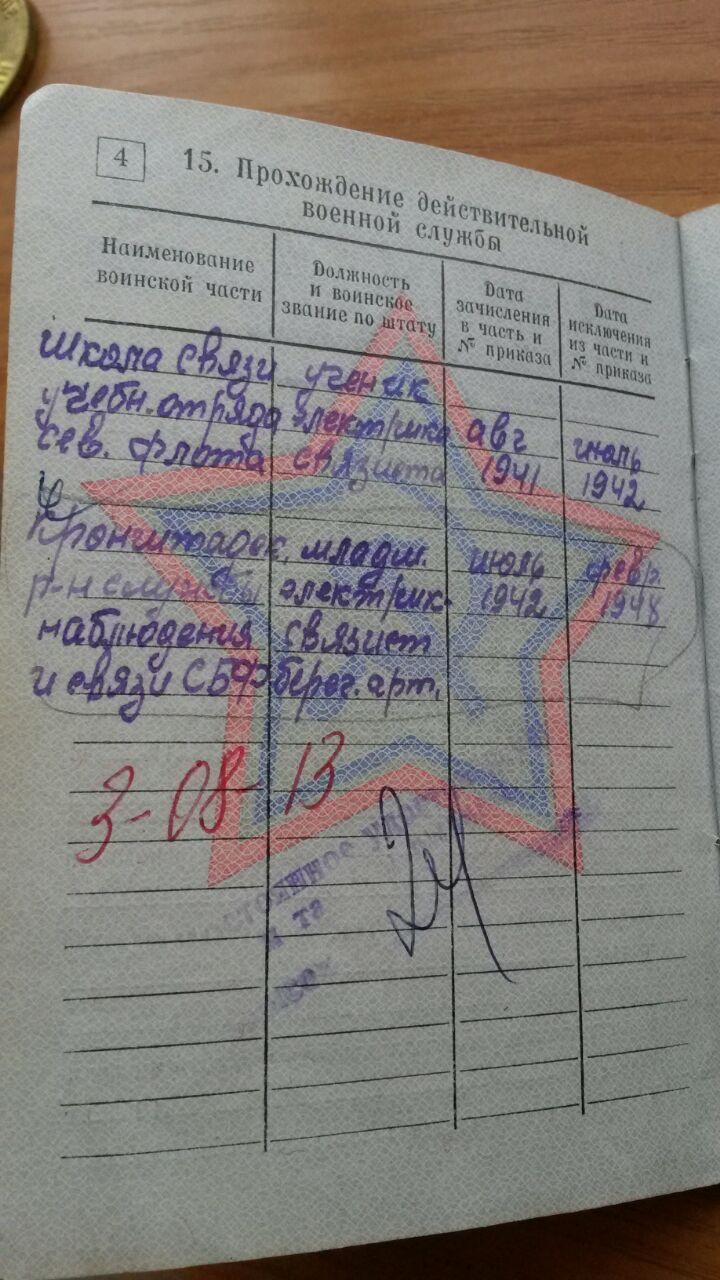 4
15. Прохождение действительной
военной службы
Наименование
воинской части
Должность
и воинское
звание по штату
Дата
зачисления
в часть и
№ приказа
Дата
исключения
из части и
№ приказа
школа связи
учебн. отряда
сев. флота
ученик
электрика
связиста
авг
1941
июль
1942
Кронштадск.
р-н службы
наблюдения
и связи СБФ
младш.
электрик-
связист
берег. арт.
июль
1942
февр.
1948
3-08-13
и та